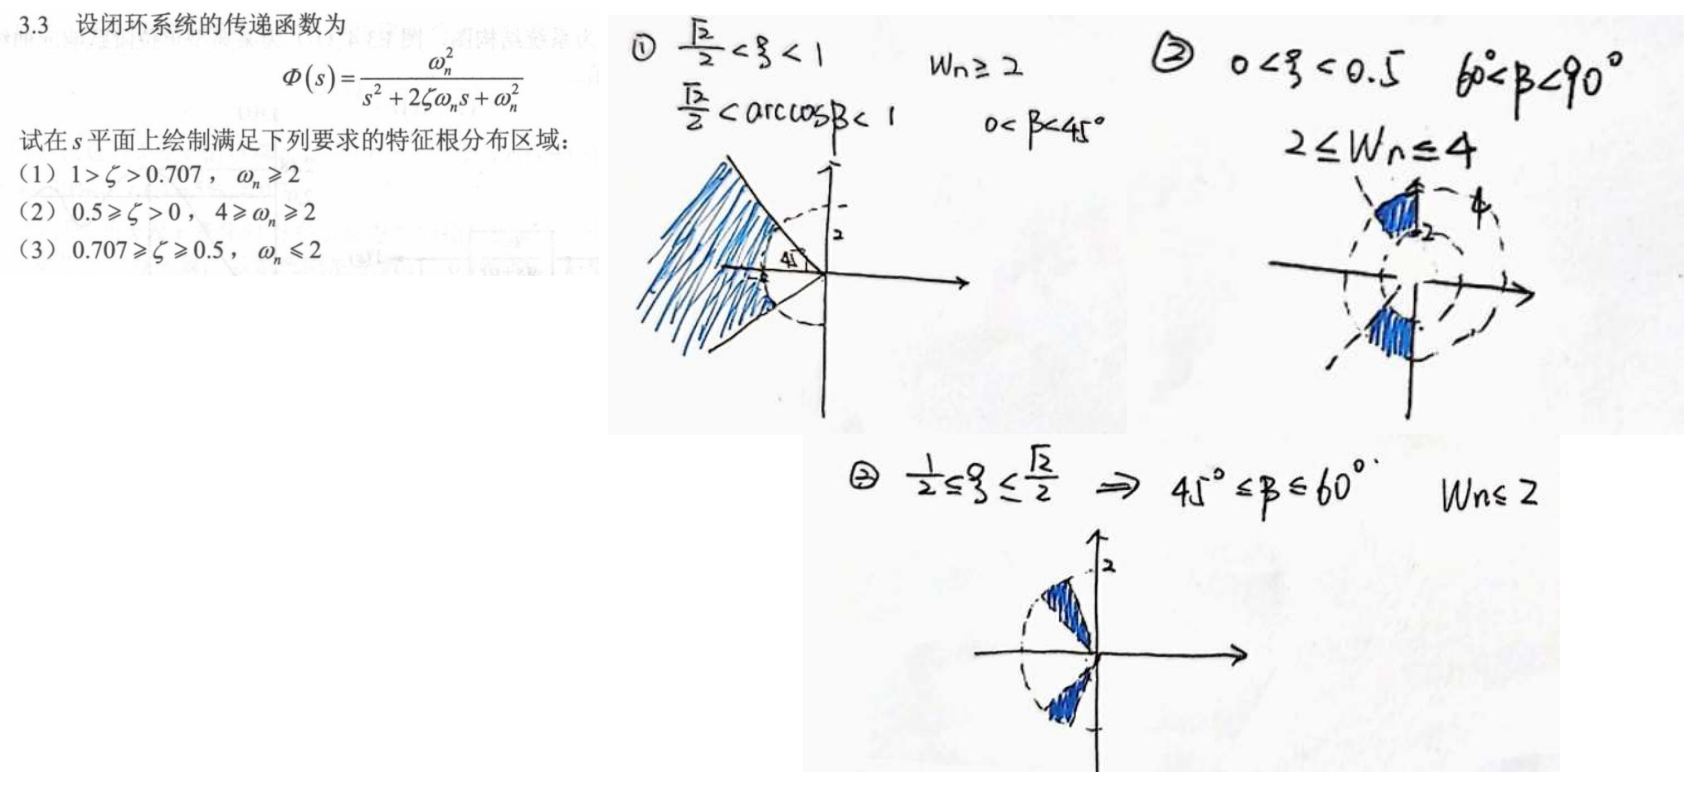 3.3 设闭环系统的传递函数为
Φ(s)=ωₙ²/(s²+2ζωₙs+ωₙ²)
试在s平面上绘制满足下列要求的特征根分布区域：
（1）1>ζ>0.707， ωₙ⩾2
（2）0.5⩾ζ>0， 4⩾ωₙ⩾2
（3）0.707⩾ζ⩾0.5， ωₙ⩽2
① √2/2<ξ<1 Wn≥2
√2/2<arccosβ<1 0<β<45°
2
45°
-2
② 0<ξ<0.5 60°<β<90°
2≤Wn≤4
4
4
2
③ 1/2≤ξ≤√2/2 ⇒ 45°≤β≤60° Wn≤2
2